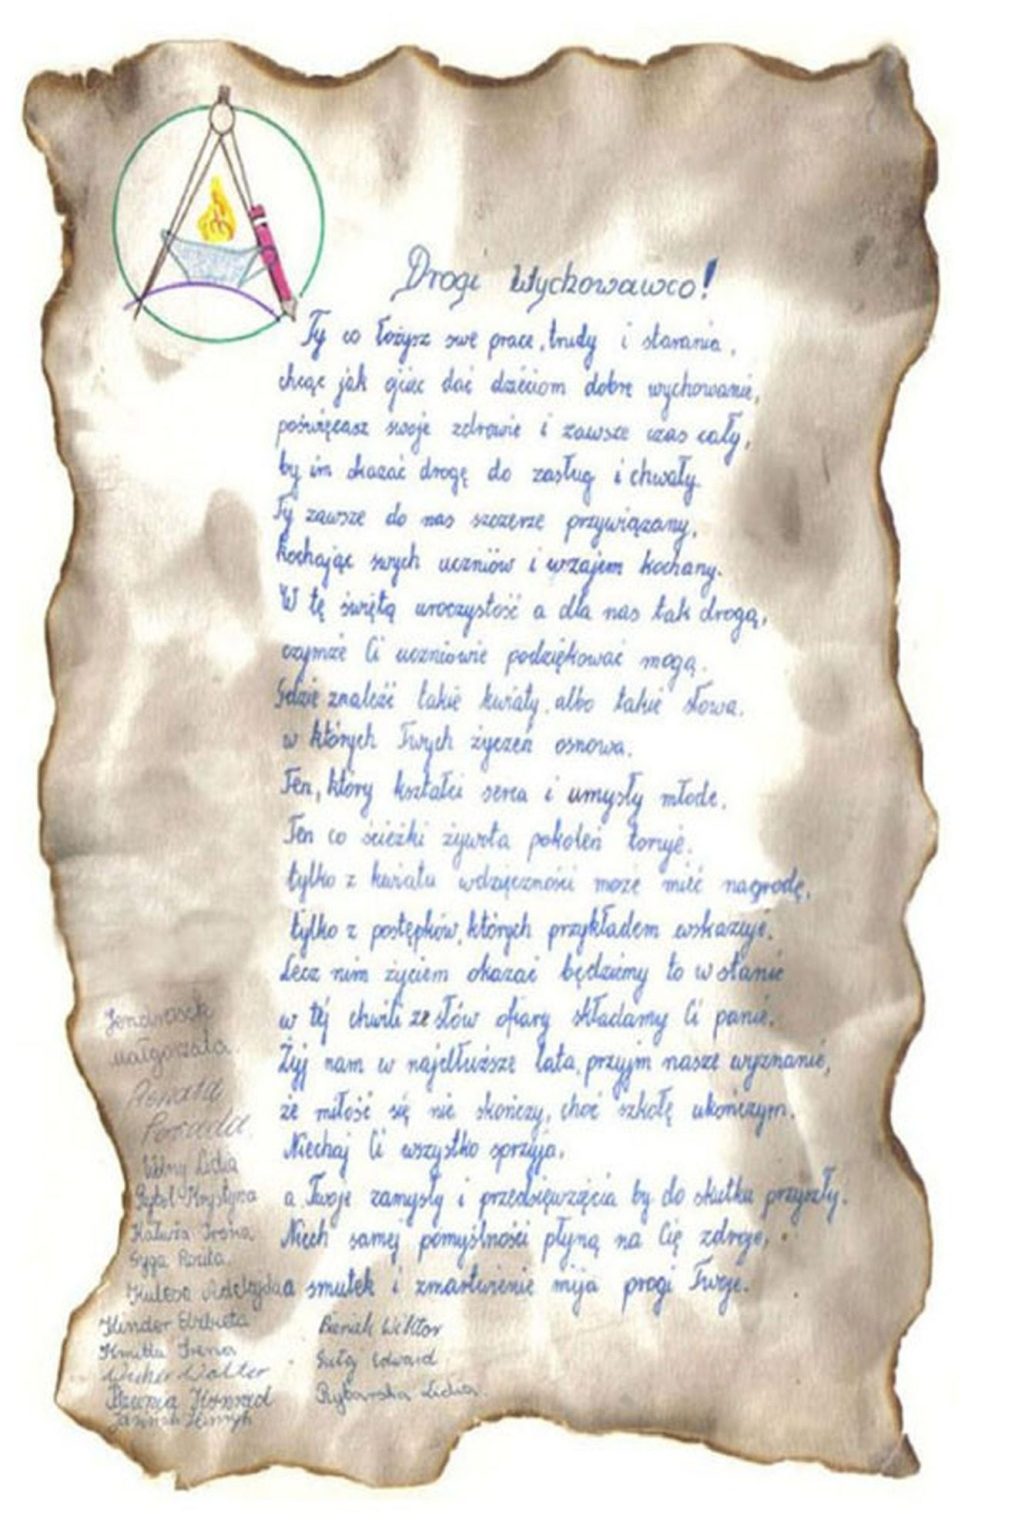 Drogi Wychowawco!
Ty co łożysz swe prace, trudy i starania,
chcąc jak ojciec dać dzieciom dobre wychowanie,
poświęcasz swoje zdrowie i zawsze czas cały,
by im okazać drogę do zasług i chwały.
Ty zawsze do nas szczerze przywiązany,
kochając swych uczniów i wzajem kochany.
W tę świętą uroczystość a dla nas tak drogą,
czymże Ci uczniowie podziękować mogą.
Gdzie znaleźć takie kwiaty, albo takie słowa,
w których Twych życzeń osnowa.
Ten, który kształci serca i umysły młode,
Ten co ścieżki żywota pokoleń toruje,
tylko z kwiatu wdzięczności może mieć nagrodę,
tylko z postępków, których przykładem wskazuje.
Lecz nim życiem okazać będziemy to w stanie
w tej chwili ze słów ofiary składamy Ci panie.
Żyj nam w najdłuższe lata, przyjm nasze wyznanie,
że miłość się nie skończy, choć szkołę ukończym.
Niechaj Ci wszystko sprzyja,
a Twoje zamysły i przedsięwzięcia by do skutku przyszły.
Niech samej pomyślności płyną na Cię zdroje,
a smutek i zmartwienie mija progi Twoje.
Małgorzata
Renata
Porada
Wolny Lidia
Krystyna
Kałuża Irena
Syga Rozita
Kulesa
Kinder Elżbieta
Kmitta Irena
Walter
Konrad
Henryk
Bieniek Wiktor
Edward
Rybarska Lidia